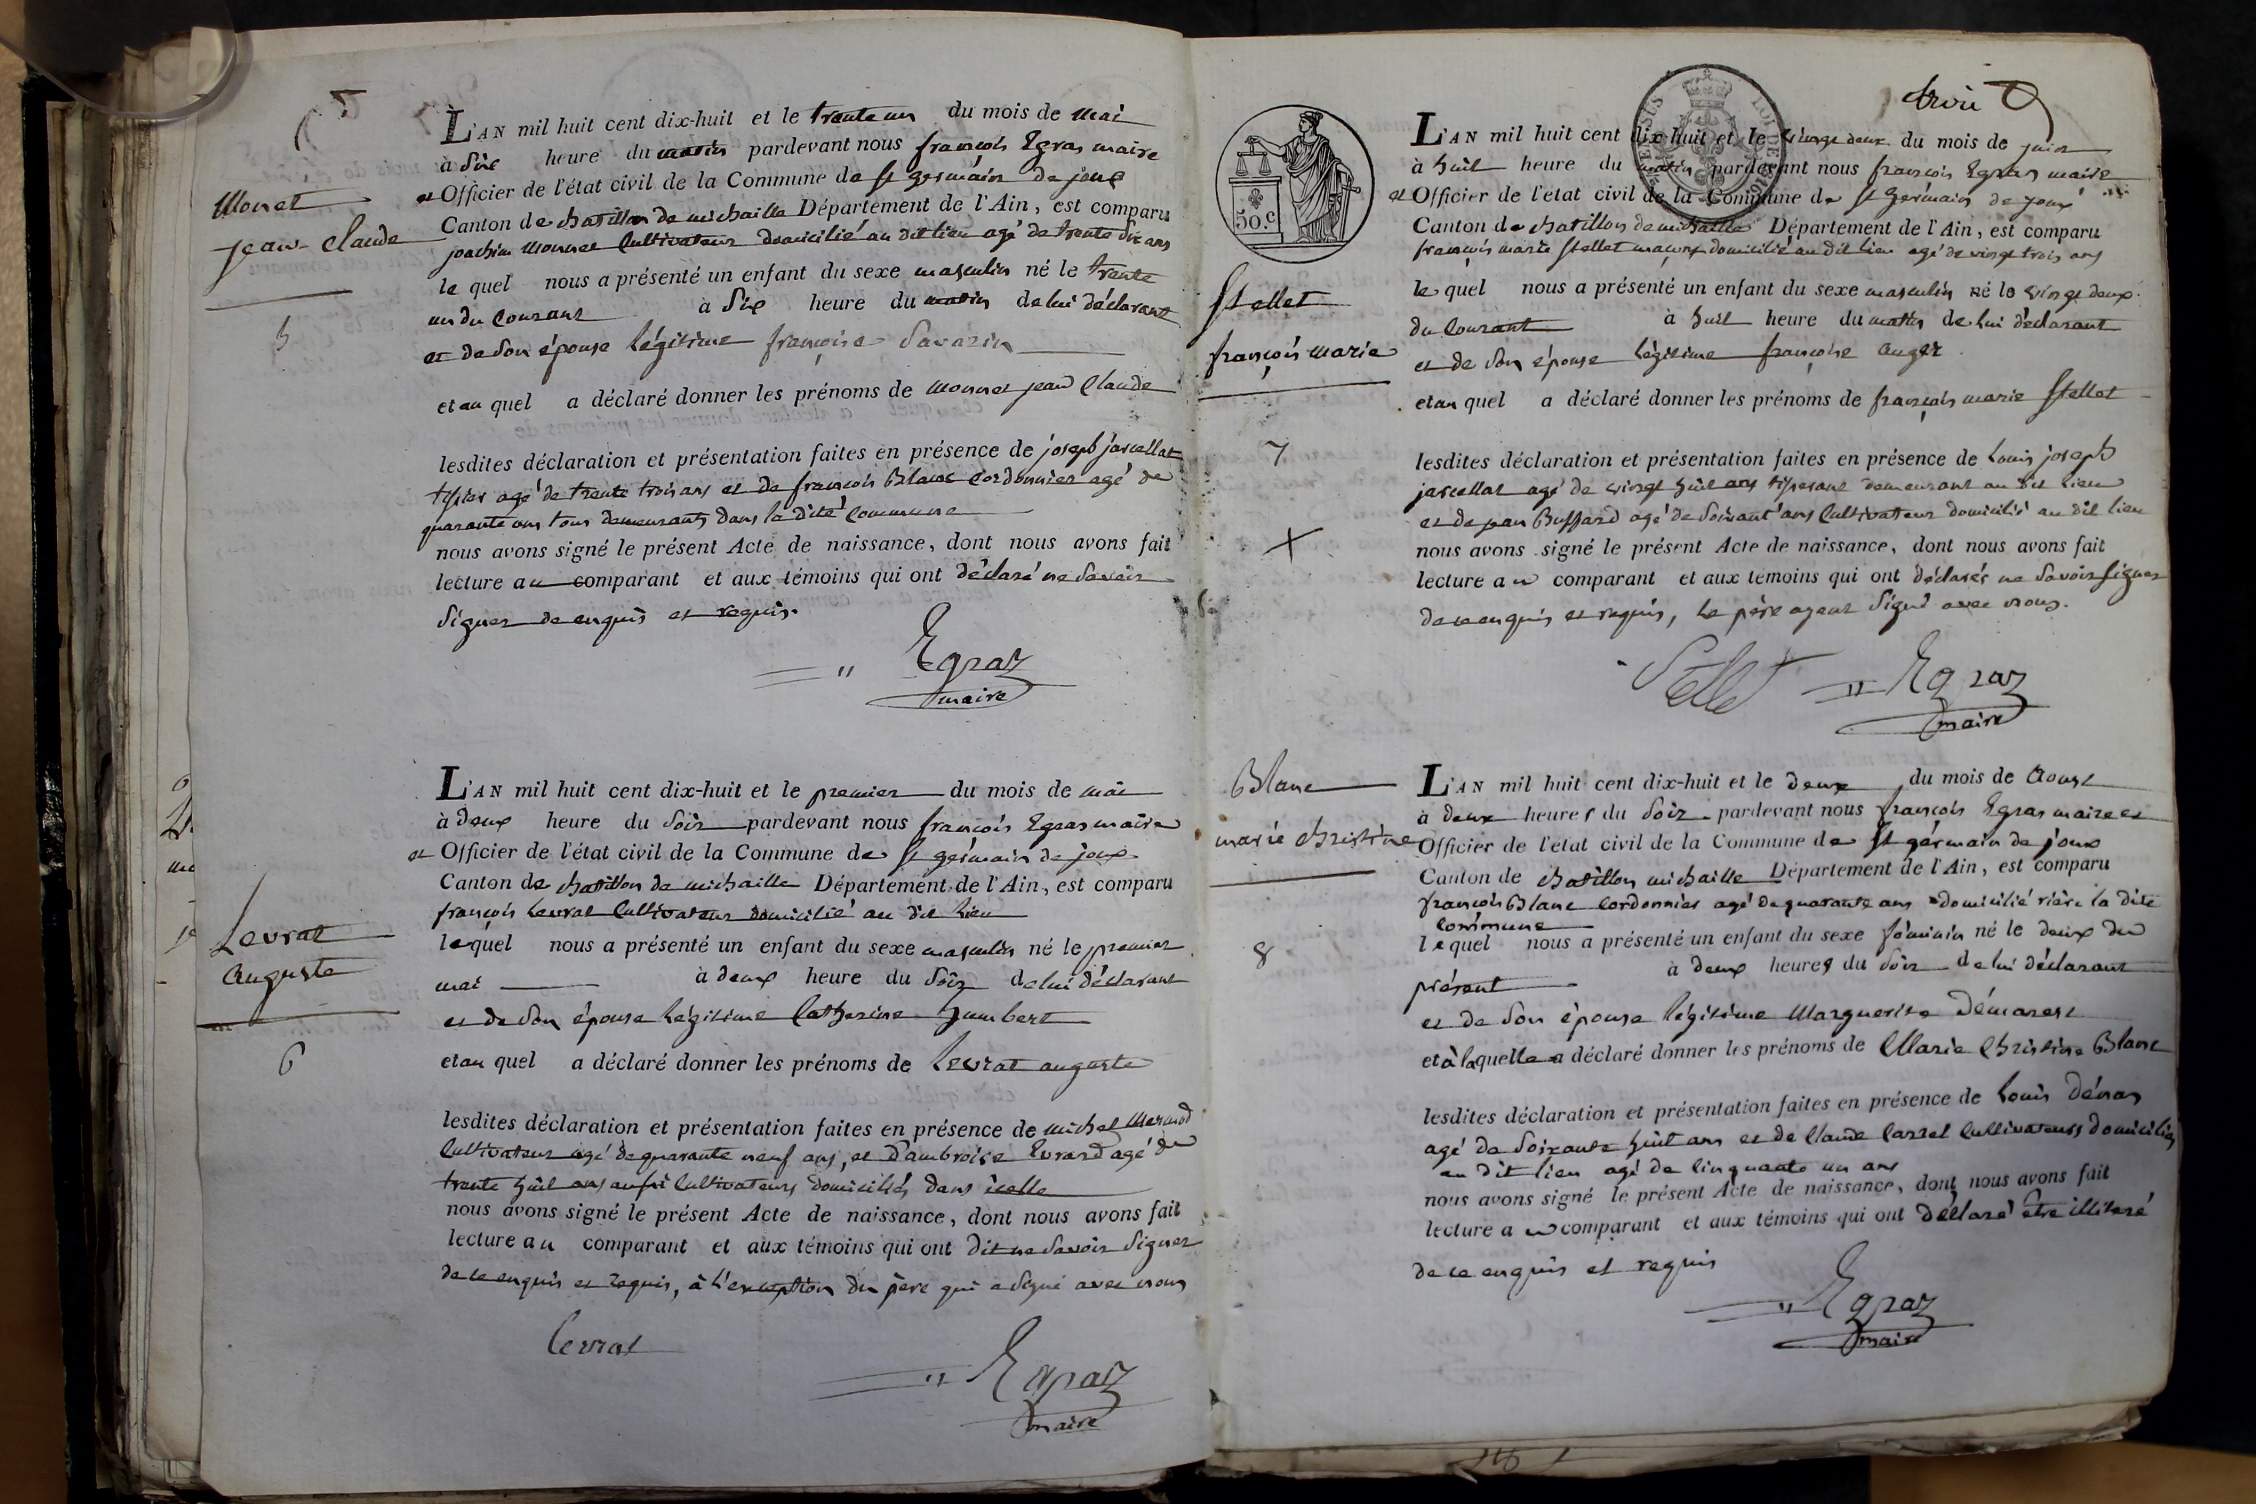 Monet
jean Claude
5
L'AN mil huit cent dix-huit et le trente un du mois de mai
à Six heure du matin pardevant nous françois Egraz maire
et Officier de l'état civil de la Commune de St germain de joux
Canton de chatillon de michaille Département de l'Ain, est comparu
joachim Monnet Cultivateur domicilié au dit lieu agé de trente six ans
le quel nous a présenté un enfant du sexe masculin né le trente
un du Courant à Six heure du matin de lui déclarant
et de Son épouse légitime françoise Savarin
et au quel a déclaré donner les prénoms de Monnet jean Claude
lesdites déclaration et présentation faites en présence de joseph jarcellat
tissier agé de trente trois ans et de françois Blanc Cordonnier agé de
quarante ans tous demeurants dans la dite Commune
nous avons signé le présent Acte de naissance, dont nous avons fait
lecture au comparant et aux témoins qui ont déclaré ne Savoir
Signer de enquis et requis.
Egraz
maire
Levrat
auguste
6
L'AN mil huit cent dix-huit et le premier du mois de mai
à deux heure du Soir pardevant nous françois Egraz maire
et Officier de l'état civil de la Commune de St germain de joux
Canton de chatillon de michaille Département de l'Ain, est comparu
françois Levrat Cultivateur domicilié au dit lieu
lequel nous a présenté un enfant du sexe masculin né le premier
mai à deux heure du Soir de lui déclarant
et de Son épouse légitime Catherine humbert
et au quel a déclaré donner les prénoms de Levrat auguste
lesdites déclaration et présentation faites en présence de michel Mermod
Cultivateur agé de quarante neuf ans, et d'ambroise Evrard agé de
trente huit ans aussi Cultivateurs domiciliés dans icelle
nous avons signé le présent Acte de naissance, dont nous avons fait
lecture au comparant et aux témoins qui ont dit ne Savoir Signer
de ce enquis et requis, à l'exception du père qui a Signé avec nous
Levrat
Egraz
maire
50.c
LOI DE 1816
Stellet
françois marie
7
L'AN mil huit cent dix-huit et le vingt deux du mois de juin
à huit heure du matin pardevant nous françois Egraz maire
et Officier de l'état civil de la Commune de St germain de joux
Canton de chatillon de michaille Département de l'Ain, est comparu
françois marie Stellet maçon domicilié au dit lieu agé de vingt trois ans
le quel nous a présenté un enfant du sexe masculin né le vingt deux
du Courant à huit heure du matin de lui déclarant
et de Son épouse légitime françoise auger
et au quel a déclaré donner les prénoms de françois marie Stellet
lesdites déclaration et présentation faites en présence de Louis joseph
jarcellat agé de vingt huit ans tisserant demeurant au dit lieu
et de jean Buffard agé de Soixant ans Cultivateur domicilié au dit lieu
nous avons signé le présent Acte de naissance, dont nous avons fait
lecture au comparant et aux témoins qui ont déclarés ne Savoir Signer
de ce enquis et requis, le père ayant Signé avec nous.
Stellet
Egraz
maire
Blanc
marie christine
8
L'AN mil huit cent dix-huit et le deux du mois de Aoust
à deux heures du Soir pardevant nous françois Egraz maire et
Officier de l'état civil de la Commune de St germain de joux
Canton de chatillon michaille Département de l'Ain, est comparu
françois Blanc Cordonnier agé de quarante ans domicilié rière la dite
commune
lequel nous a présenté un enfant du sexe féminin né le deux du
présent à deux heures du Soir de lui déclarant
et de Son épouse légitime Marguerite Démarest
et à laquelle a déclaré donner les prénoms de Marie Christine Blanc
lesdites déclaration et présentation faites en présence de Louis
agé de Soixante huit ans et de Claude Carrel Cultivateurs domiciliés
au dit lieu agé de Cinquante un ans
nous avons signé le présent Acte de naissance, dont nous avons fait
lecture au comparant et aux témoins qui ont déclaré être illiteré
de ce enquis et requis
Egraz
maire